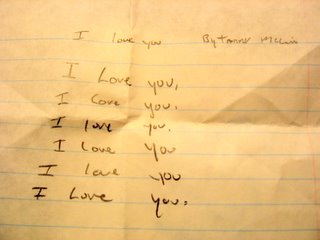 I love you By
I Love you,
I Love you.
I love you.
I love you
I love you
I Love you.